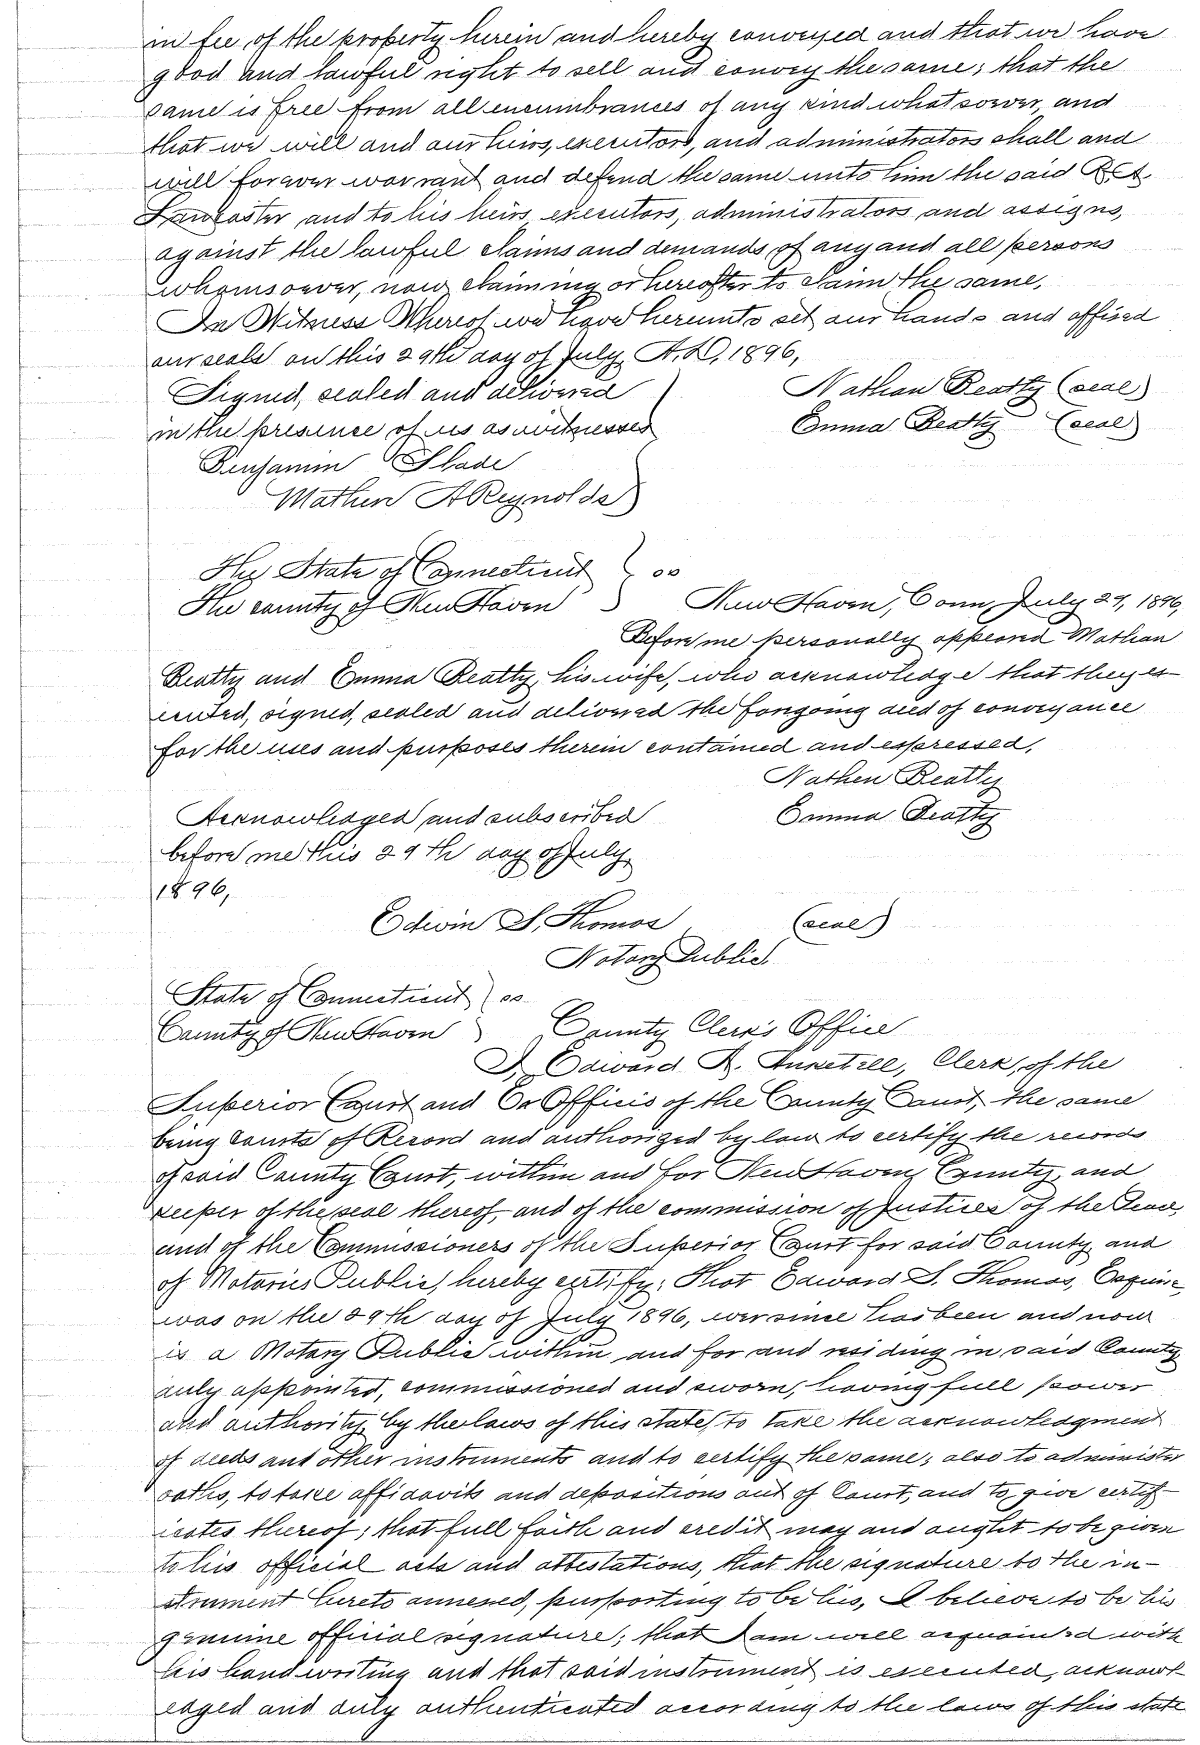 in fee, of the property herein and hereby conveyed and that we have
good and lawful right to sell and convey the same; that the
same is free from all encumbrances of any kind whatsoever, and
that we will and our heirs, executors, and administrators shall and
will forever warrant and defend the same unto him the said
Lancaster and to his heirs, executors, administrators and assigns,
against the lawful claims and demands of any and all persons
whomsoever, now claiming or hereafter to claim the same,
In Witness Whereof we have hereunto set our hands and affixed
our seals on this 29th day of July, A.D, 1896,
Signed, sealed and delivered ) Nathan Beatty (seal)
in the presence of us as witnesses Emma Beatty (seal)
Benjamin Slade
Mathew A Reynolds )
The State of Connecticut } ss
The county of New Haven ) New Haven, Conn, July 29, 1896,
Before me personally appeared Nathan
Beatty and Emma Beatty, his wife, who acknowledge that they ex-
ecuted, signed, sealed and delivered the forgoing deed of conveyance
for the uses and purposes therein contained and expressed,
Nathen Beatty
Acknowledged and subscribed Emma Beatty
before me this 29th day of July
1896,
Edwin S. Thomas (seal)
Notary Public
State of Connecticut ) ss
County of New Haven ) County Clerk's Office
I, Edward A. Anketell, Clerk, of the
Superior Court and Ex Officio of the County Court, the same
being Courts of Record and authorized by law to certify the records
of said County Court, within and for New Haven County, and
keeper of the seal thereof, and of the commission of Justices of the Peace,
and of the Commissioners of the Superior Court for said County and
of Notaries Public, hereby certify; That Edward S. Thomas, Esquire,
was on the 29th day of July 1896, ever since has been and now
is a Notary Public within and for and residing in said County
duly appointed, commissioned and sworn, having full power
and authority by the laws of this state, to take the acknowledgment
of deeds and other instruments and to certify the same; also to administer
oaths, to take affidavits and depositions out of Court, and to give certif-
icates thereof; that full faith and credit may and ought to be given
to his official acts and attestations, that the signature to the in-
strument hereto annexed, purporting to be his, I believe to be his
genuine official signature; that I am well acquainted with
his handwriting and that said instrument is executed, acknowl-
edged and duly authenticated according to the laws of this state